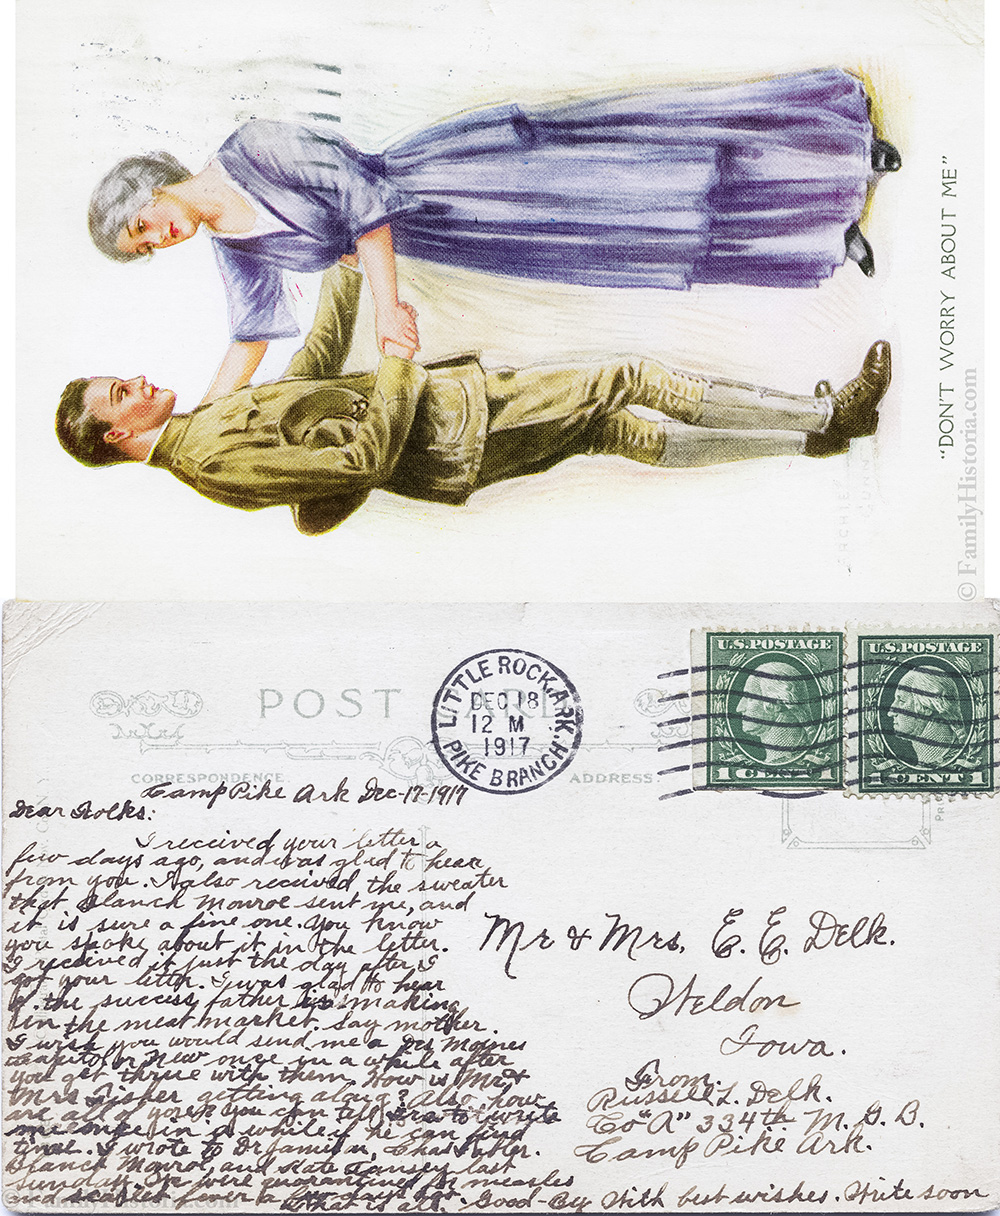 "DON'T WORRY ABOUT ME"
© FamilyHistoria.com
POST CARD
CORRESPONDENCE
ADDRESS
LITTLE ROCK, ARK.
DEC 18
12 M
1917
PIKE BRANCH
U.S. POSTAGE
1 CENT 1
U.S. POSTAGE
CENT 1
Camp Pike Ark Dec-17-1917
Dear Folks:
I received your letter a
few days ago, and was glad to hear
from you. I also received the sweater
that Blanch Monroe sent me, and
it is sure a fine one. You know
you spoke about it in the letter.
I received it just the day after I
got your letter. I was glad to hear
of the success father is making
in the meat market. Say mother.
I wish you would send me a Des Moines
Capitol or New once in a while after
you get thrue with them How is Mr &
Mrs Fisher getting along? Also how
are all of you you can tell to write
me once in a while if he can find
time. I wrote to Dr Jamison, Chas
Blanch Monroe, and Kate last
Sunday. We were quarantined for measles
and scarlet fever a few days ago
What is all. Good-By With best wishes. Write soon
Mr & Mrs, E. E. Delk.
Weldon
Iowa.
From.
Russell L. Delk.
Co "A" 334th M. G. B.
Camp Pike Ark.
FamilyHistoria.com